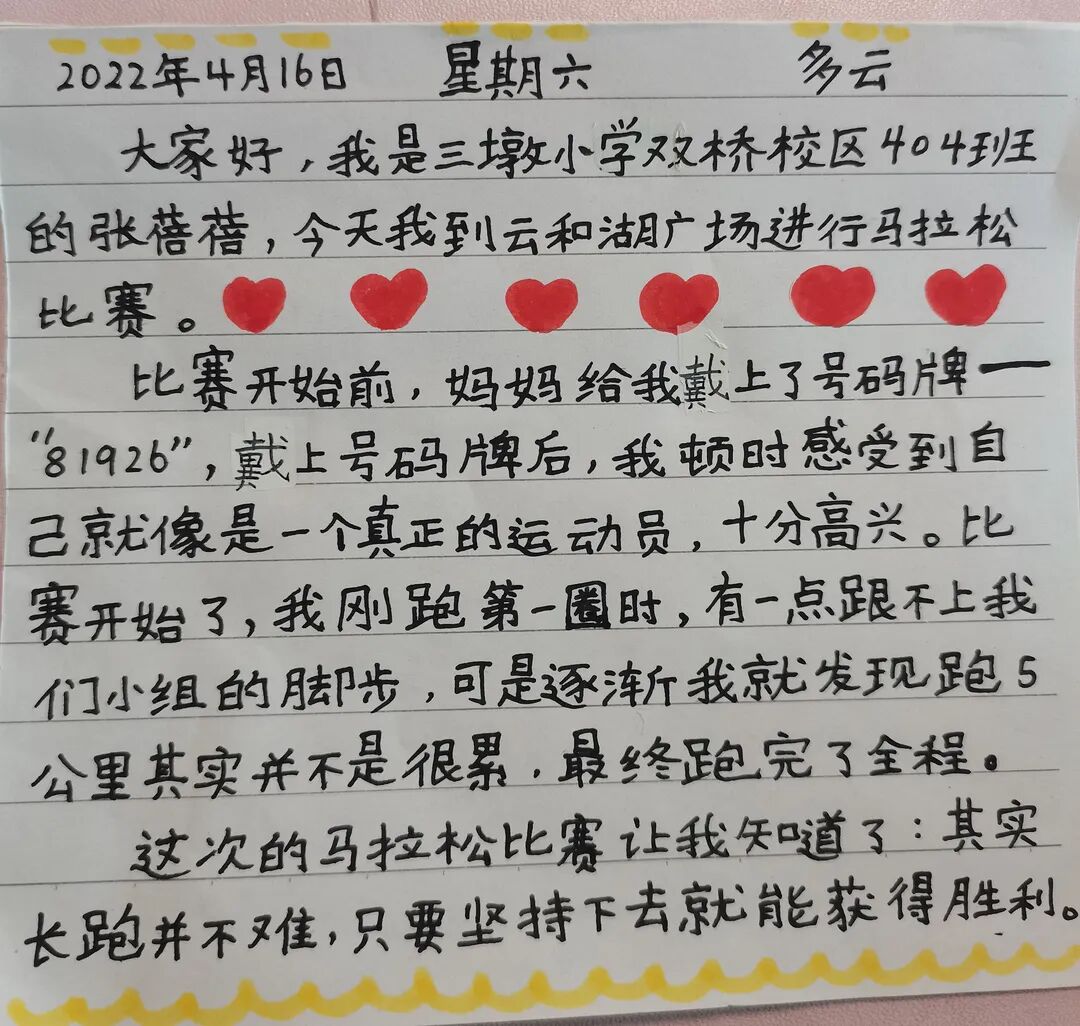 2022年4月16日 星期六 多云
大家好，我是三墩小学双桥校区404班
的张蓓蓓，今天我到云和湖广场进行马拉松
比赛。
比赛开始前，妈妈给我戴上了号码牌——
“81926”，戴上号码牌后，我顿时感受到自
己就像是一个真正的运动员，十分高兴。比
赛开始了，我刚跑第一圈时，有一点跟不上我
们小组的脚步，可是逐渐我就发现跑5
公里其实并不是很累，最终跑完了全程。
这次的马拉松比赛让我知道了：其实
长跑并不难，只要坚持下去就能获得胜利。